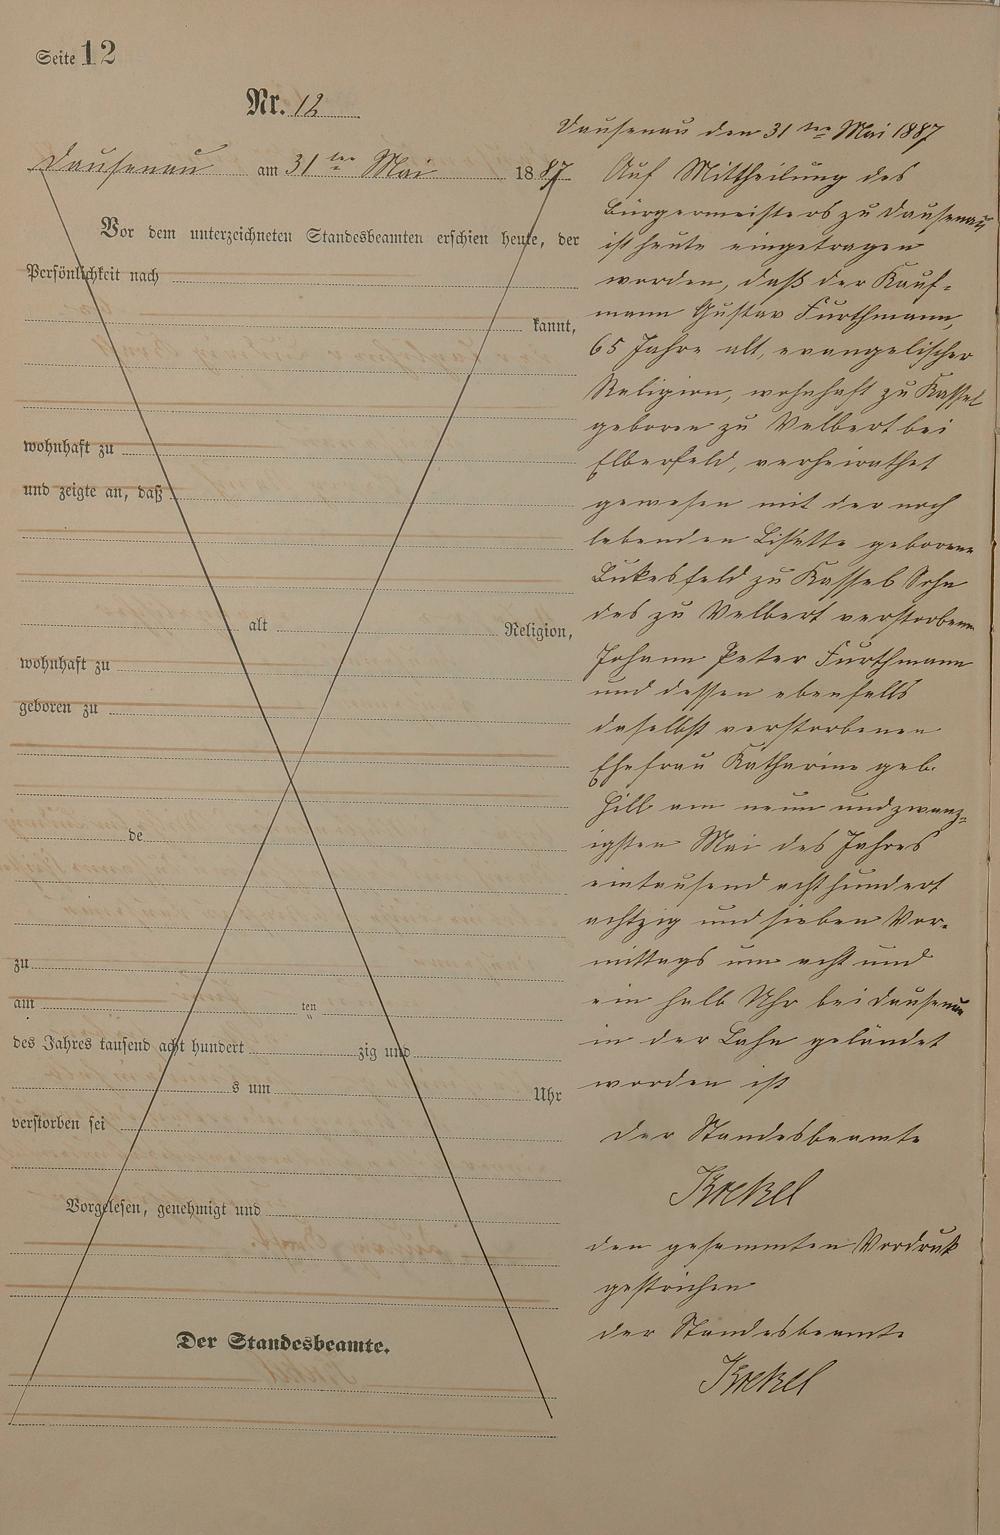 Seite 12
Nr. 12
Dausenau am 31ten Mai 1887
Vor dem unterzeichneten Standesbeamten erschien heute, der
Persönlichkeit nach
kannt,
wohnhaft zu
und zeigte an, daß
alt Religion,
wohnhaft zu
geboren zu
de
zu
am ten
des Jahres tausend acht hundert zig und
s um Uhr
verstorben sei
Vorgelesen, genehmigt und
Der Standesbeamte.
Dausenau den 31ten Mai 1887
Auf Mittheilung des
Bürgermeisters zu Dausenau
ist heute eingetragen
worden, daß der Kauf-
mann Gustav Furthmann,
65 Jahre alt, evangelischer
Religion, wohnhaft zu Kassel
geboren zu Velbert bei
Elberfeld, verheirathet
gewesen mit der noch
lebenden Lisette geborene
Lukesfeld zu Kassel Sohn
des zu Velbert verstorbenen
Johann Peter Furthmann
und dessen ebenfalls
daselbst verstorbenen
Ehefrau Katharine geb.
Hill am neun und zwanz-
igsten Mai des Jahres
eintausend acht hundert
achtzig und sieben Vor-
mittags um acht und
ein halb Uhr bei Dausenau
in der Lahn geländet
worden ist
der Standesbeamte
Krekel
den gesammten Vordruk
gestrichen
der Standesbeamte
Krekel